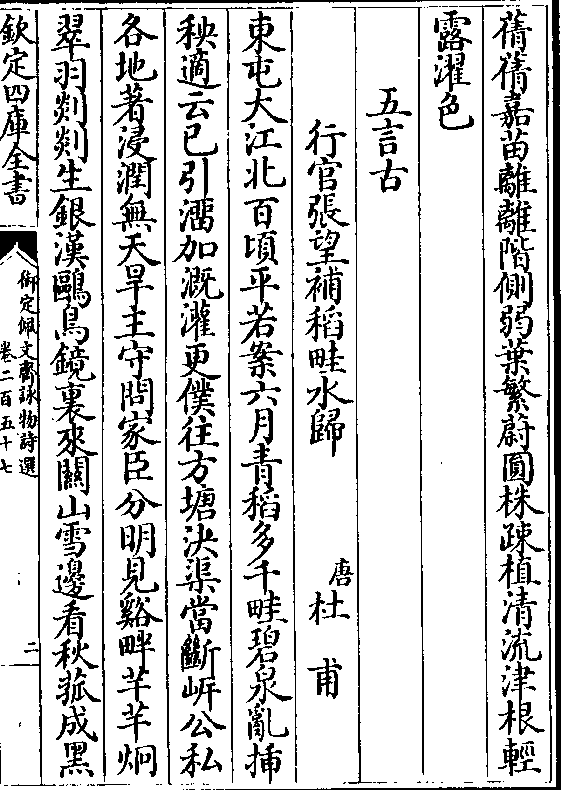 蒨蒨嘉苗離離階側弱葉繁蔚圓株疎植清流津根輕
露濯色
五言古
行官張望補稻畦水歸
唐杜甫
東屯大江北百頃平若案六月青稻多千畦碧泉亂插
秧適云已引溜加溉灌更僕往方塘決渠當斷岍公私
各地著浸潤無天旱主守問家臣分明見谿畔芊芊炯
翠羽剡剡生銀漢鷗鳥鏡裏來關山雪邊看秋菰成黑
欽定四庫全書
御定佩文齋詠物詩選
卷二百五十七
二